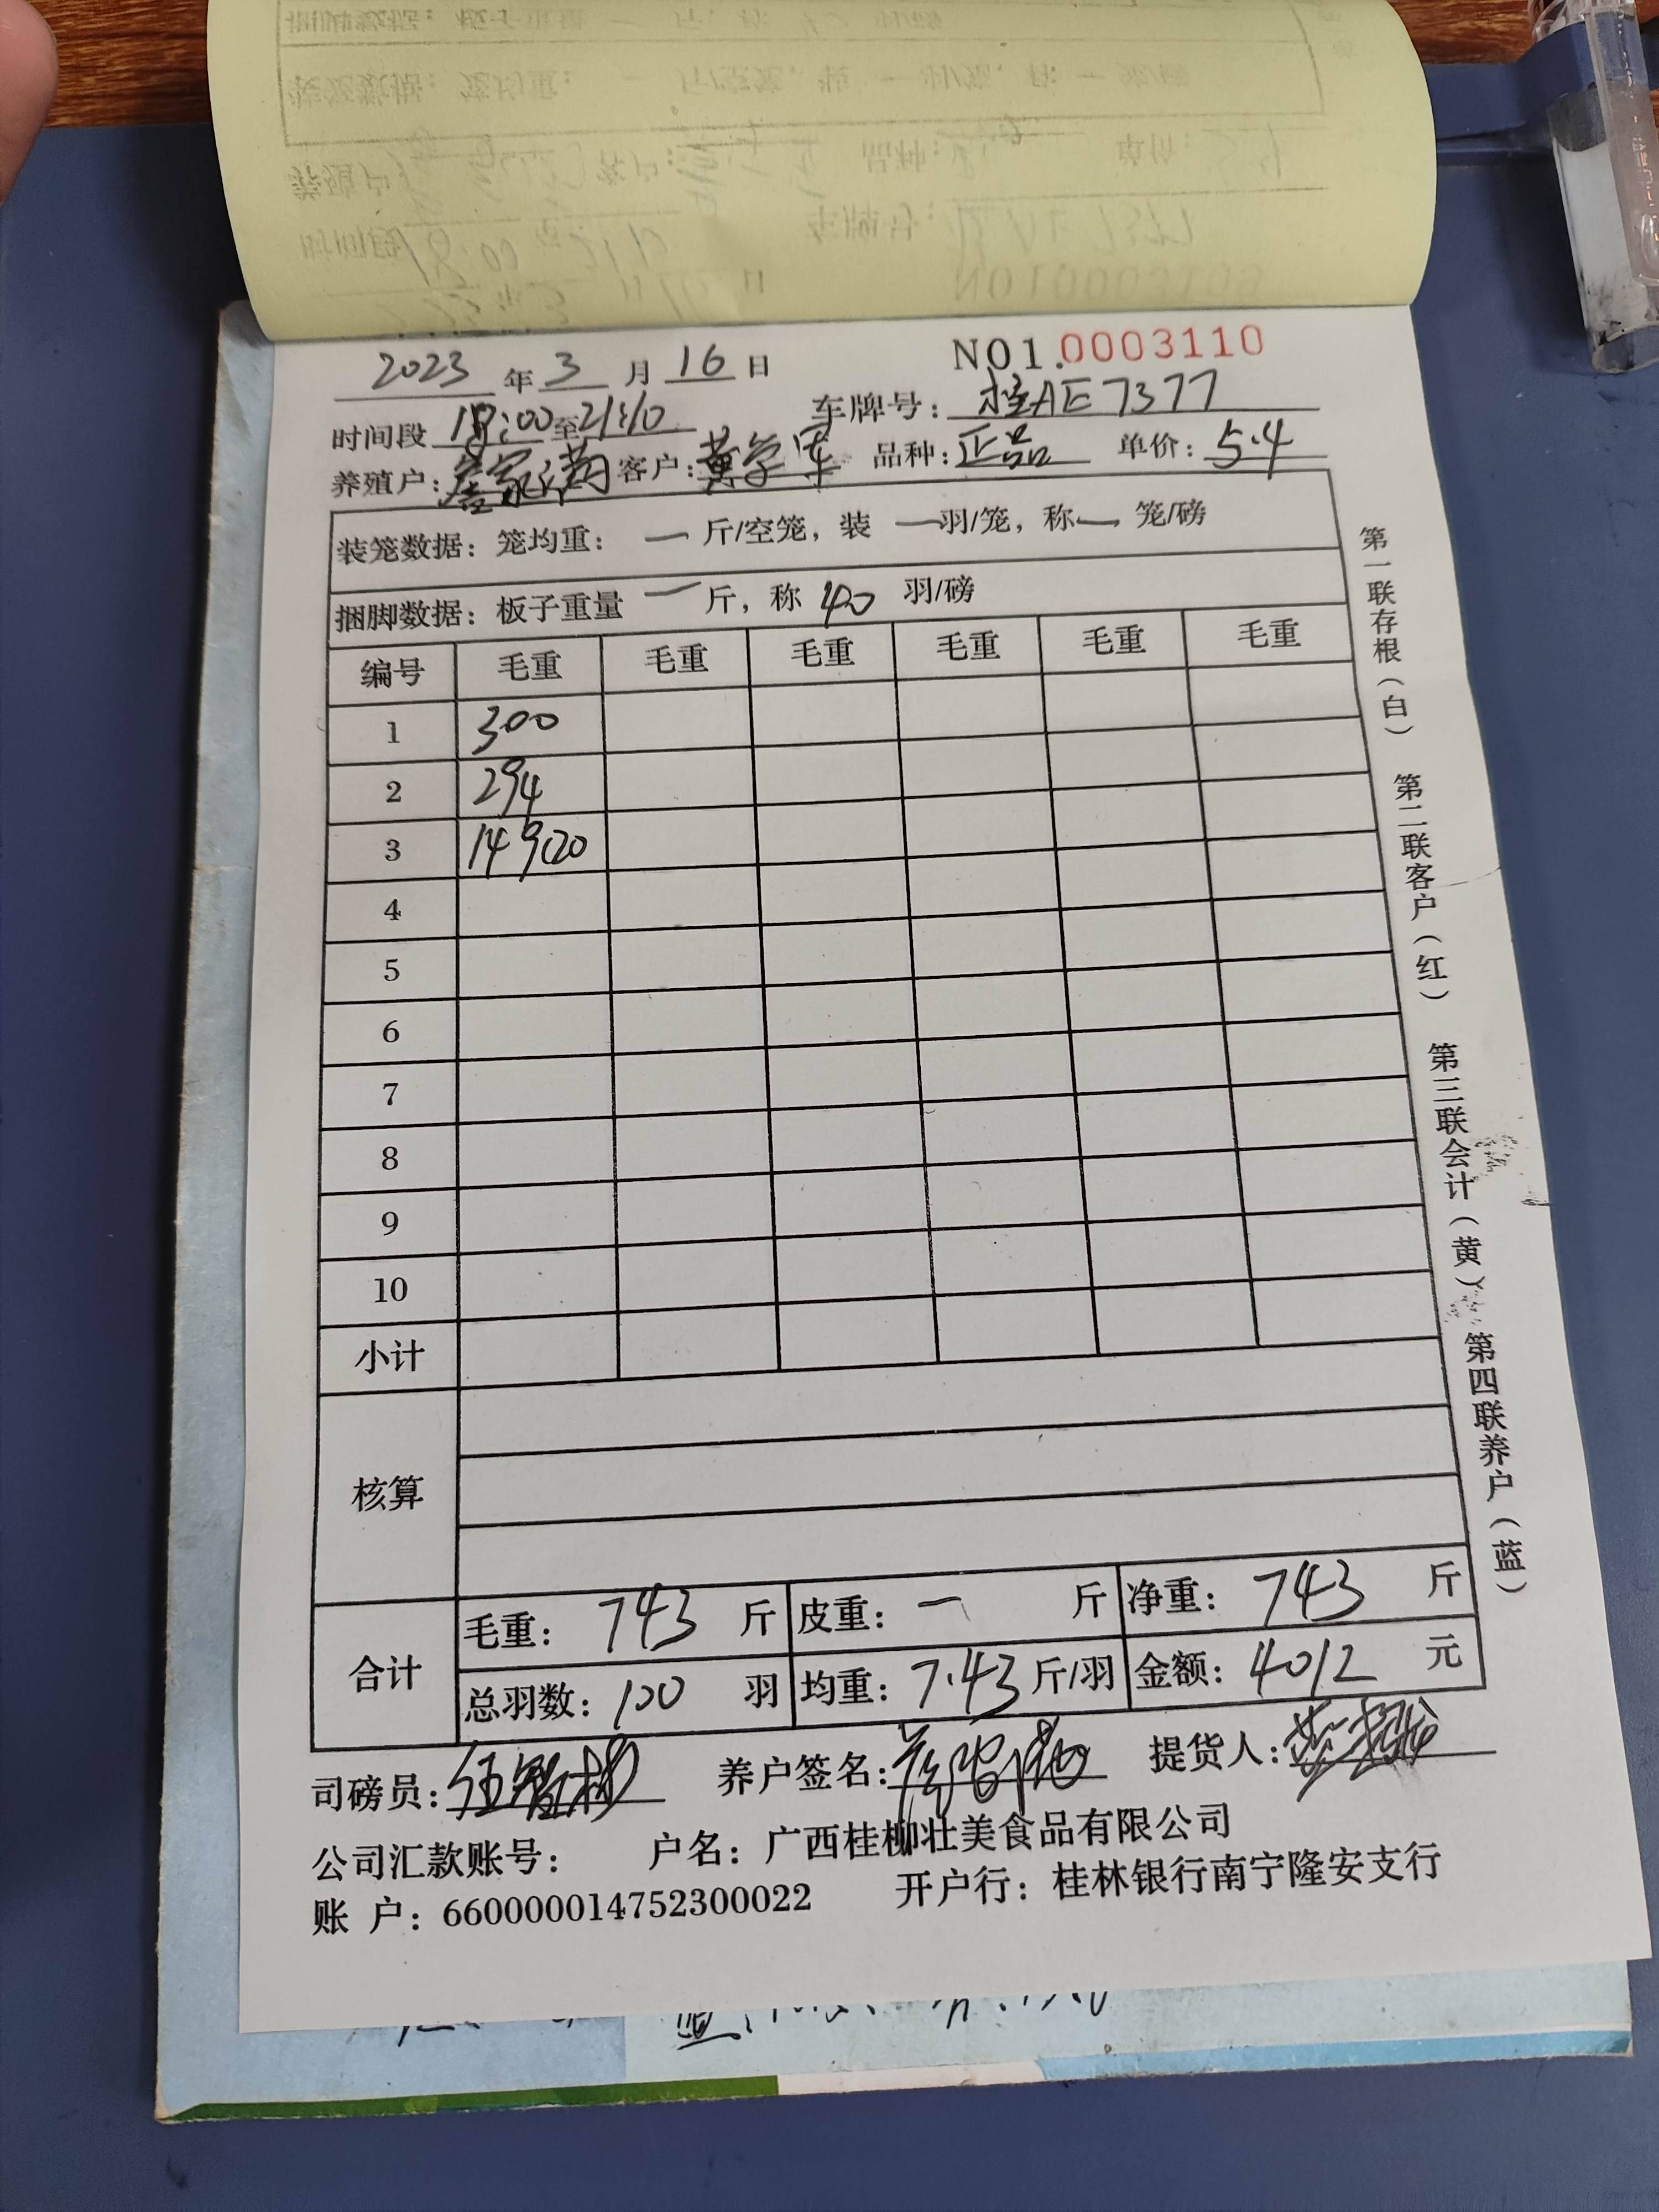 2023 年 3 月 16 日 NO1.0003110
时间段 18:00至21:10 车牌号：桂AE7377
养殖户： 客户：黄学军 品种：正品 单价：5.4
装笼数据：笼均重：一 斤/空笼，装 一羽/笼，称一 笼/磅
捆脚数据：板子重量 一 斤，称 40 羽/磅
编号 毛重 毛重 毛重 毛重 毛重 毛重
1 300
2 294
3 149(20
4
5
6
7
8
9
10
小计
核算
合计
毛重：743 斤 皮重：一 斤 净重：743 斤
总羽数：100 羽 均重：7.43斤/羽 金额：4012 元
司磅员： 养户签名： 提货人：
公司汇款账号： 户名：广西桂柳壮美食品有限公司
账 户：660000014752300022 开户行：桂林银行南宁隆安支行
第一联存根（白） 第二联客户（红） 第三联会计（黄） 第四联养户（蓝）